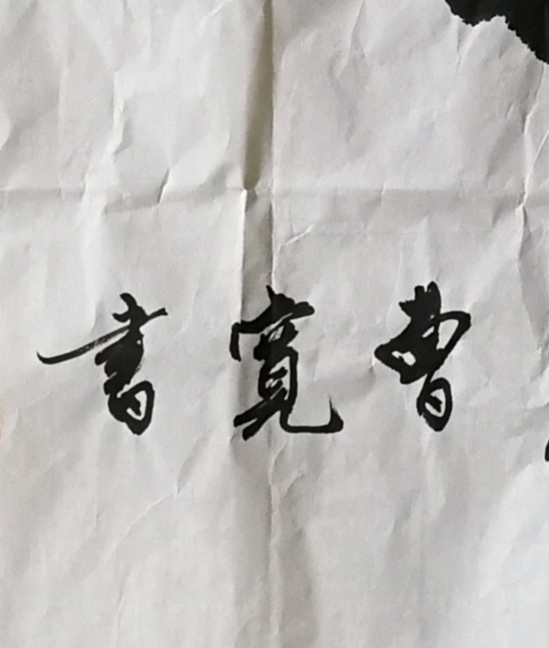 曹寬書